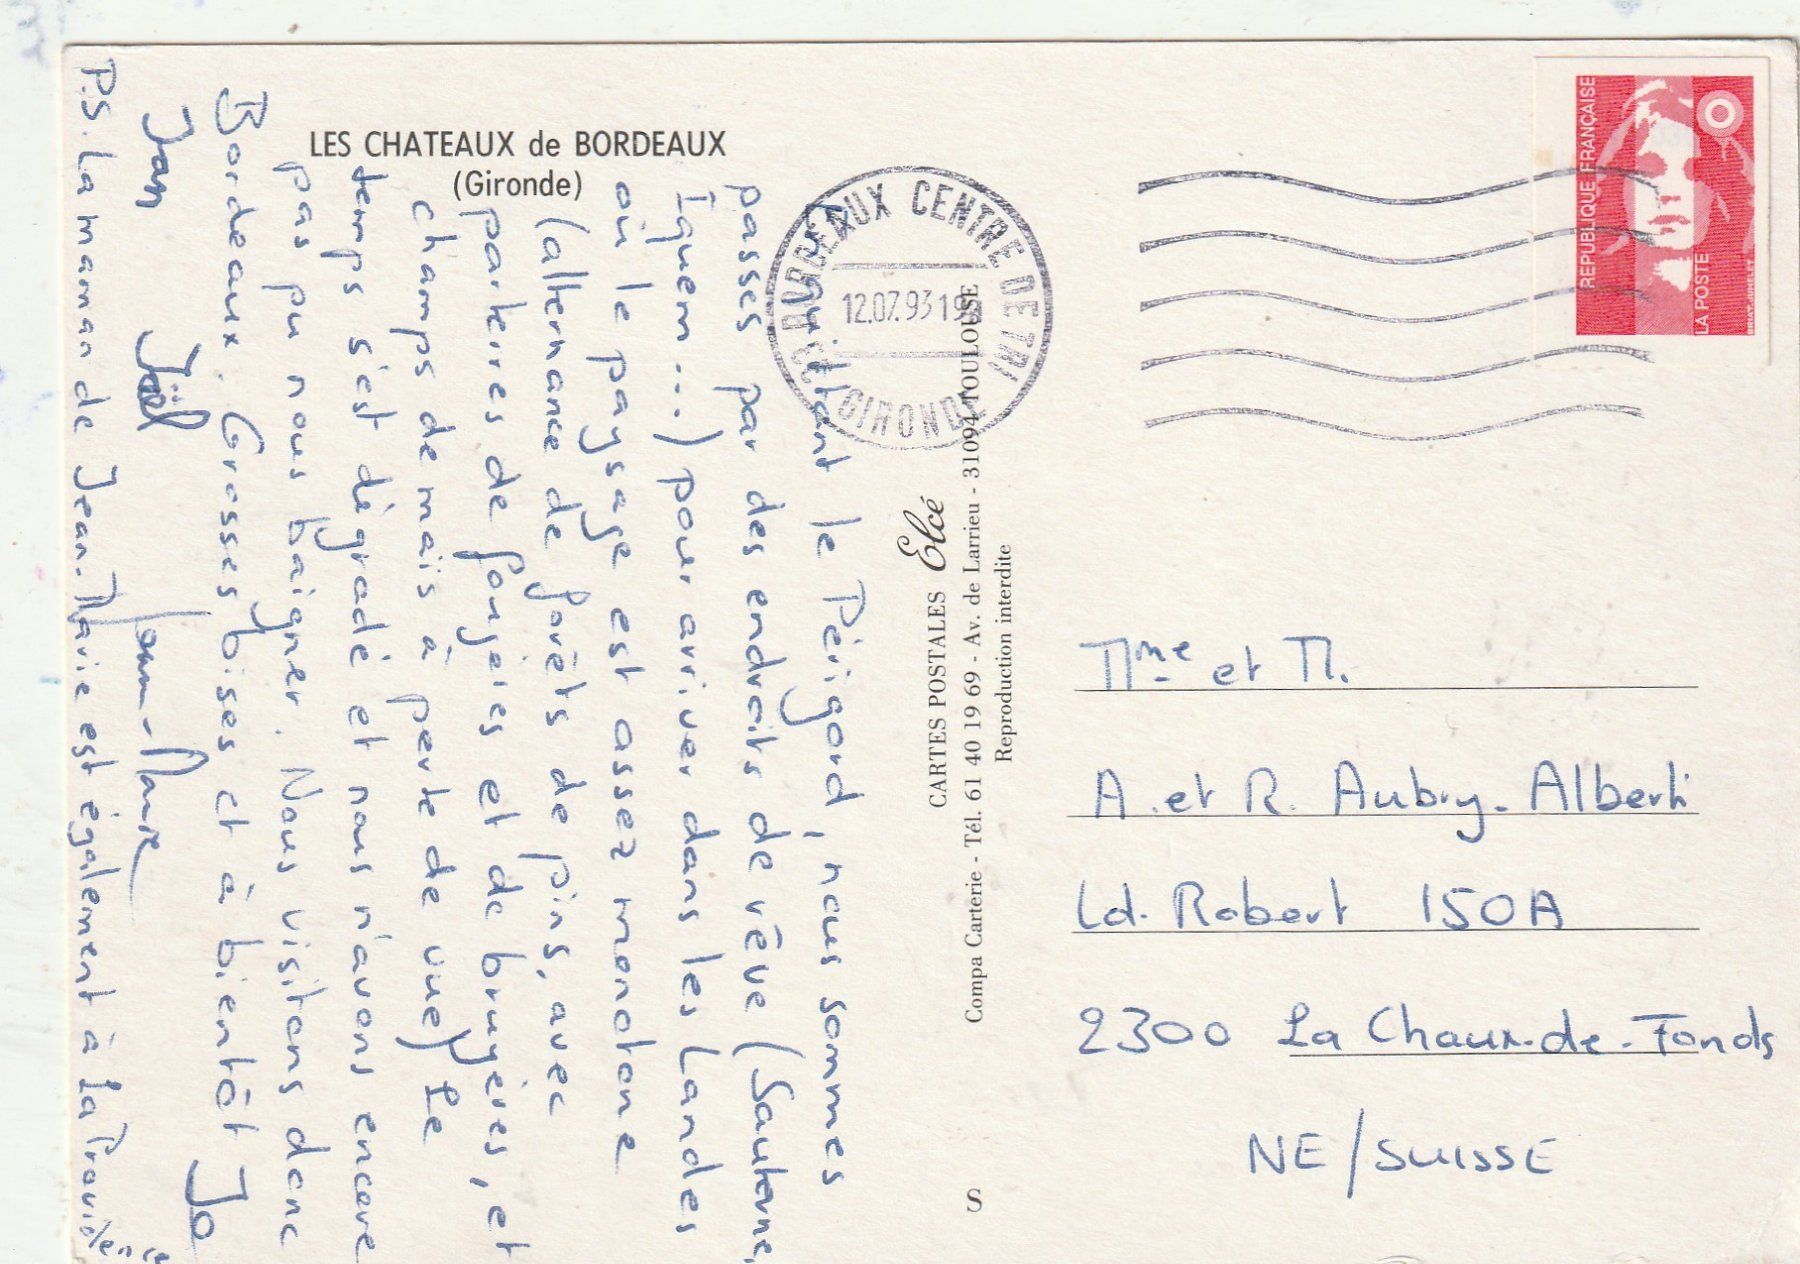 LES CHATEAUX de BORDEAUX
(Gironde)
En quittant le Périgord, nous sommes
passés par des endroits de rêve (Sauterne,
Iquem...) pour arriver dans les Landes
où le paysage est assez monotone
(alternance de forêts de pins, avec
parterres de fougères et de bruyères, et
champs de maïs à perte de vue) Le
temps s'est dégradé et nous n'avons encore
pas pu nous baigner. Nous visitons donc
Bordeaux. Grosses bises et à bientôt Jo
Joël
P.S. La maman de Jean-Marie est également à La Providence
CARTES POSTALES Elcé
Compa Carterie - Tél. 61 40 19 69 - Av. de Larrieu - 31094 TOULOUSE
Reproduction interdite
S
BORDEAUX CENTRE DE TRI
12.07.93
GIRONDE
REPUBLIQUE FRANÇAISE
LA POSTE
Mme et M.
A. et R. Aubry-Alberti
Ld. Robert 150A
2300 La Chaux-de-Fonds
NE/SUISSE